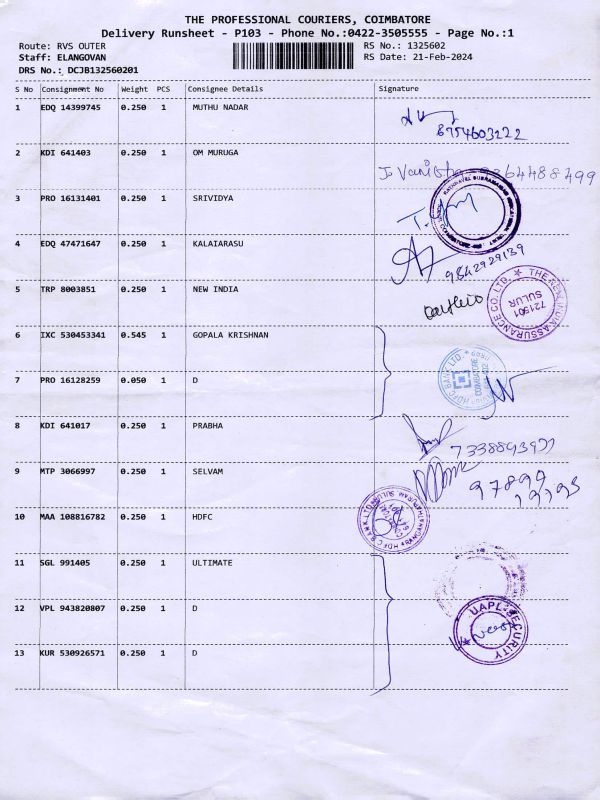 THE PROFESSIONAL COURIERS, COIMBATORE
Delivery Runsheet - P103 - Phone No.:0422-3505555 - Page No.:1
Route: RVS OUTER
RS No.: 1325602
Staff: ELANGOVAN
RS Date: 21-Feb-2024
DRS No.: DCJB132560201
S No Consignment No Weight PCS Consignee Details Signature
1 EDQ 14399745 0.250 1 MUTHU NADAR
8754603122
2 KDI 641403 0.250 1 OM MURUGA
3 PRO 16131401 0.250 1 SRIVIDYA
4 EDQ 47471647 0.250 1 KALAIARASU
9842929139
5 TRP 8003851 0.250 1 NEW INDIA
THE NEW INDIA ASSURANCE CO. LTD.
721501
SULUR
6 IXC 530453341 0.545 1 GOPALA KRISHNAN
HDFC BANK LTD
COIMBATORE
7 PRO 16128259 0.050 1 D
8 KDI 641017 0.250 1 PRABHA
9 MTP 3066997 0.250 1 SELVAM
10 MAA 108816782 0.250 1 HDFC
HDFC BANK LTD
11 SGL 991405 0.250 1 ULTIMATE
12 VPL 943820807 0.250 1 D
UAPL SECURITY
13 KUR 530926571 0.250 1 D